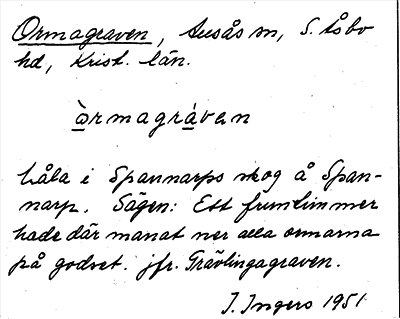 Ormagraven, Ausås sn, S. Åsbo
hd, Krist. län.
òrmagràven
Håla i Spannarps skog å Span-
narp. Sägen: Ett fruntimmer
hade där manat ner alla ormarna
på godset. jfr. Grävlingagraven.
I. Ingers 1951